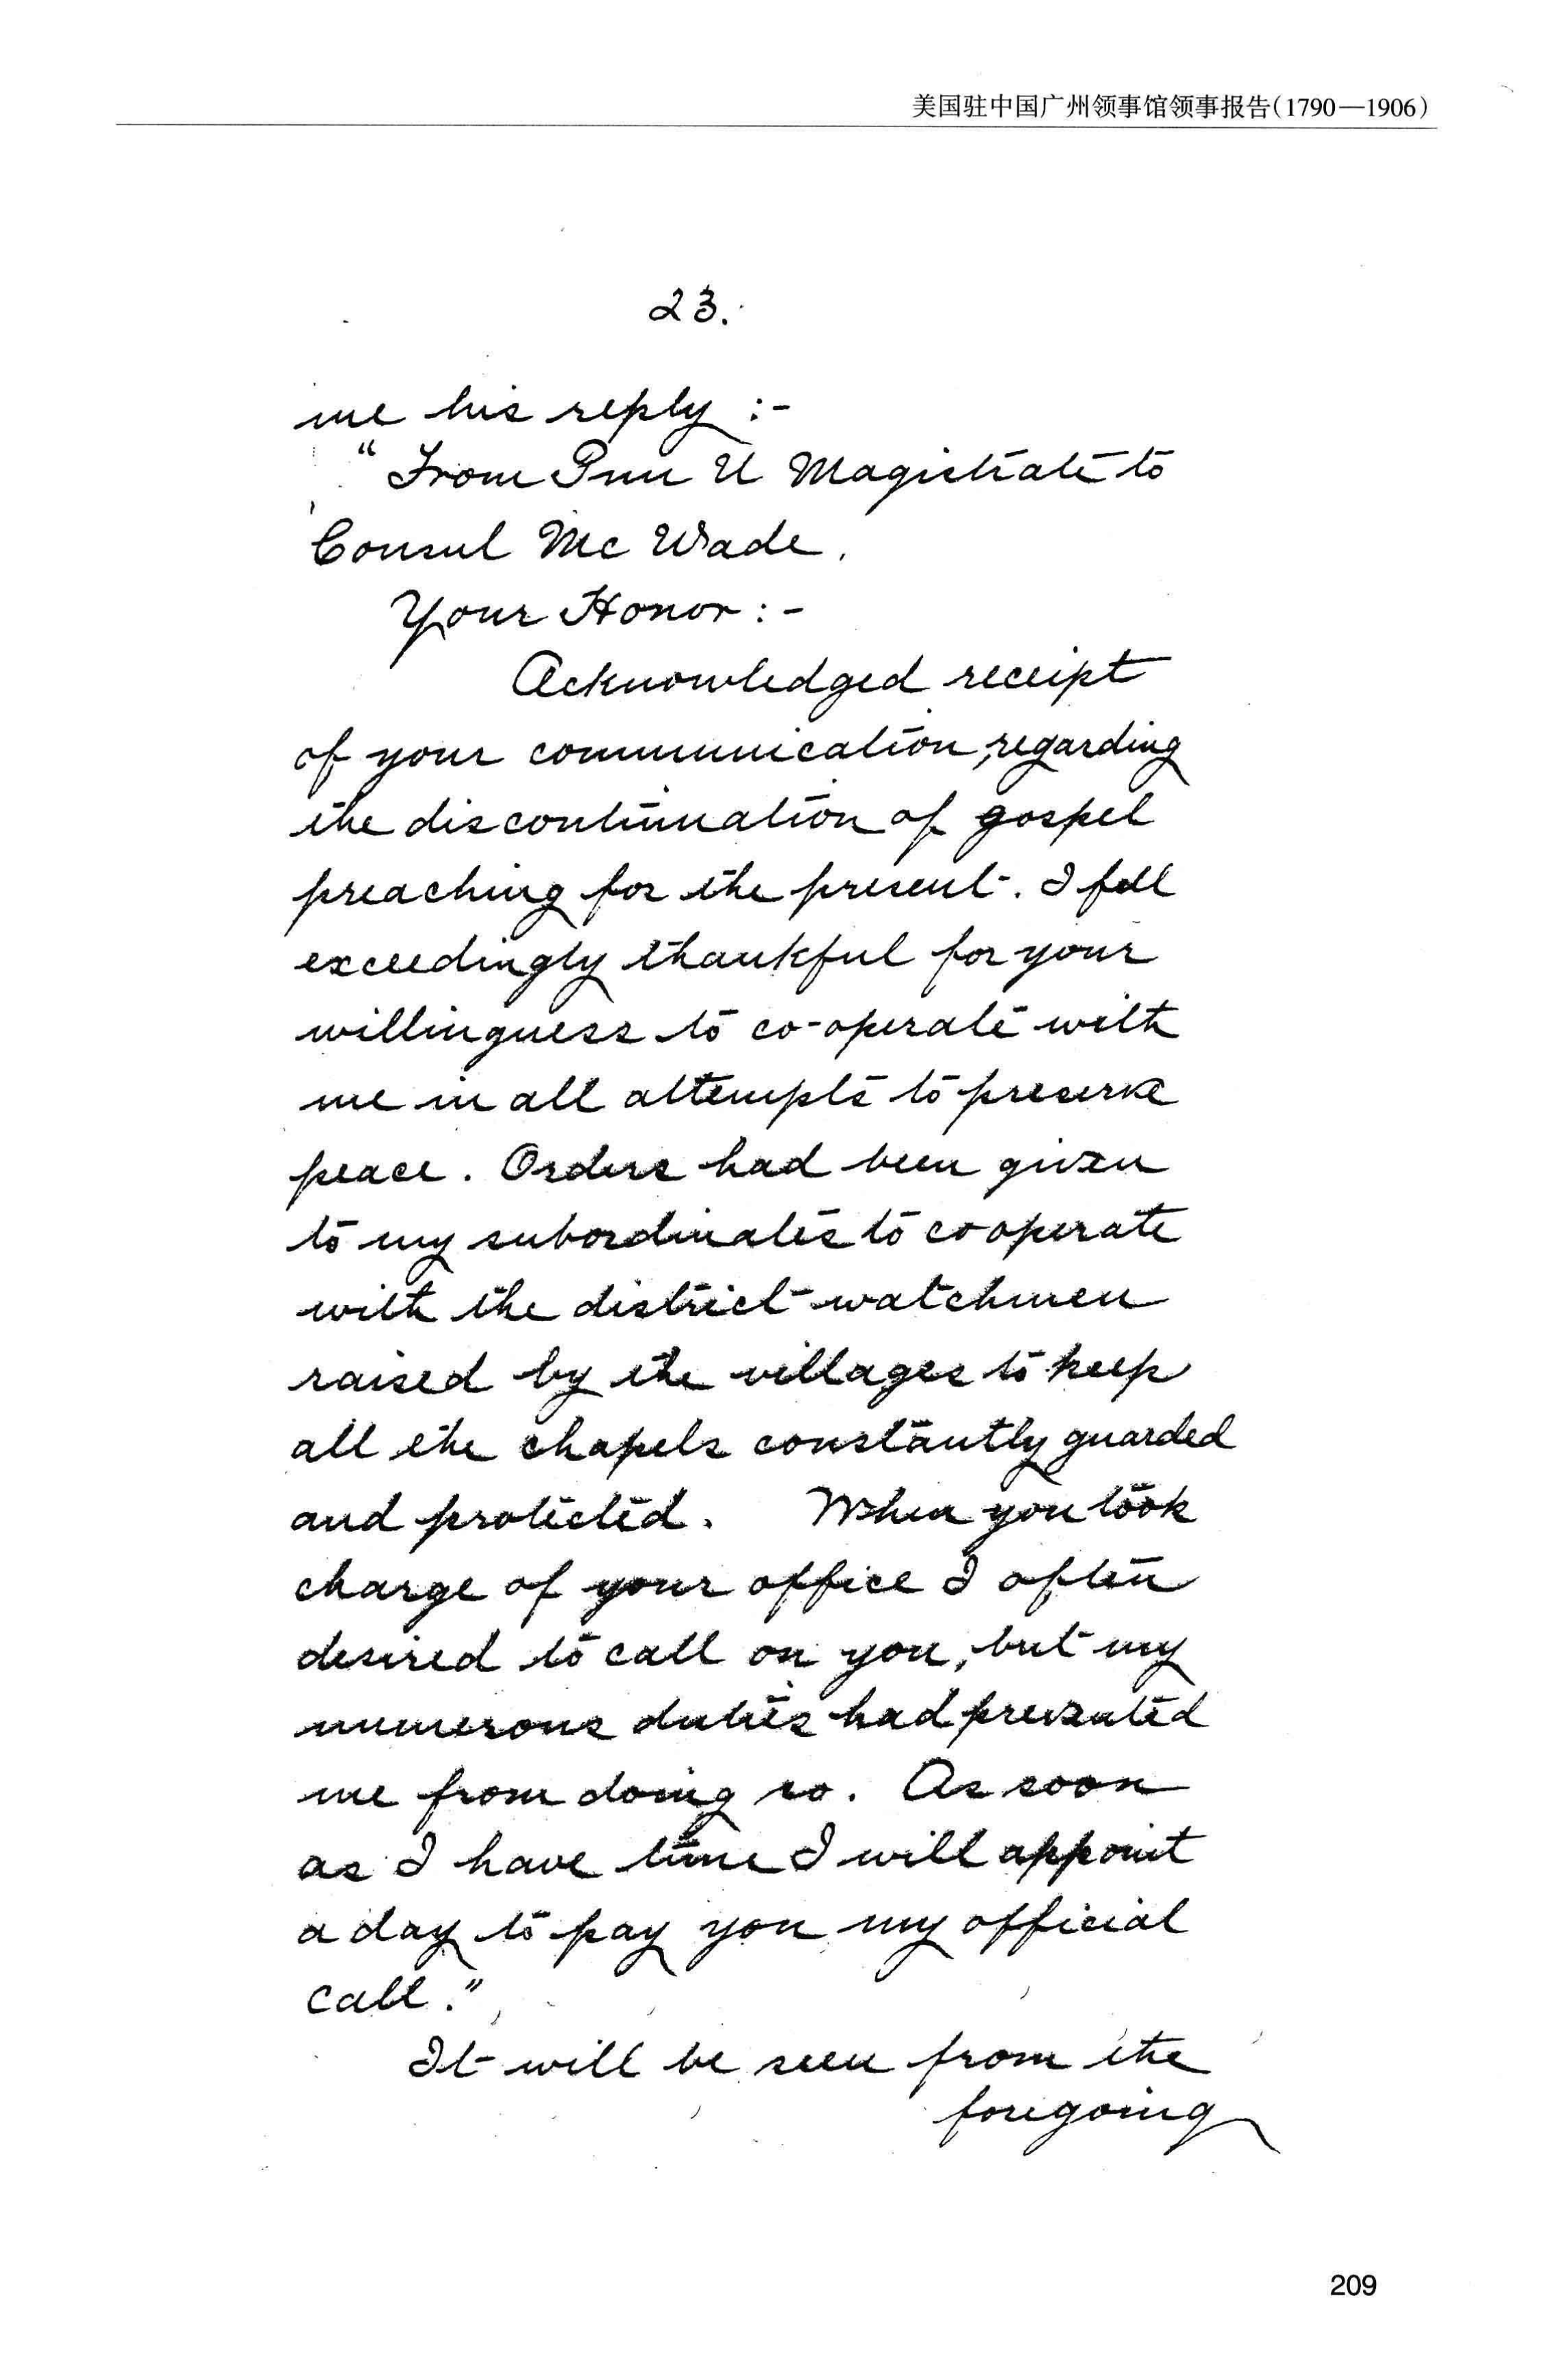 美国驻中国广州领事馆领事报告(1790—1906)
23.
me his reply :-
"From Pun U Magistrate to
Consul Mc Wade.
Your Honor :-
Acknowledged receipt
of your communication, regarding
the discontinuation of gospel
preaching for the present. I fell
exceedingly thankful for your
willingness to co-operate with
me in all attempts to preserve
peace. Orders had been given
to my subordinates to cooperate
with the district watchmen
raised by the villages to keep
all the chapels constantly guarded
and protected. When you took
charge of your office I often
desired to call on you, but my
numerous duties had prevented
me from doing so. As soon
as I have time I will appoint
a day to pay you my official
call."
It will be seen from the
foregoing
209